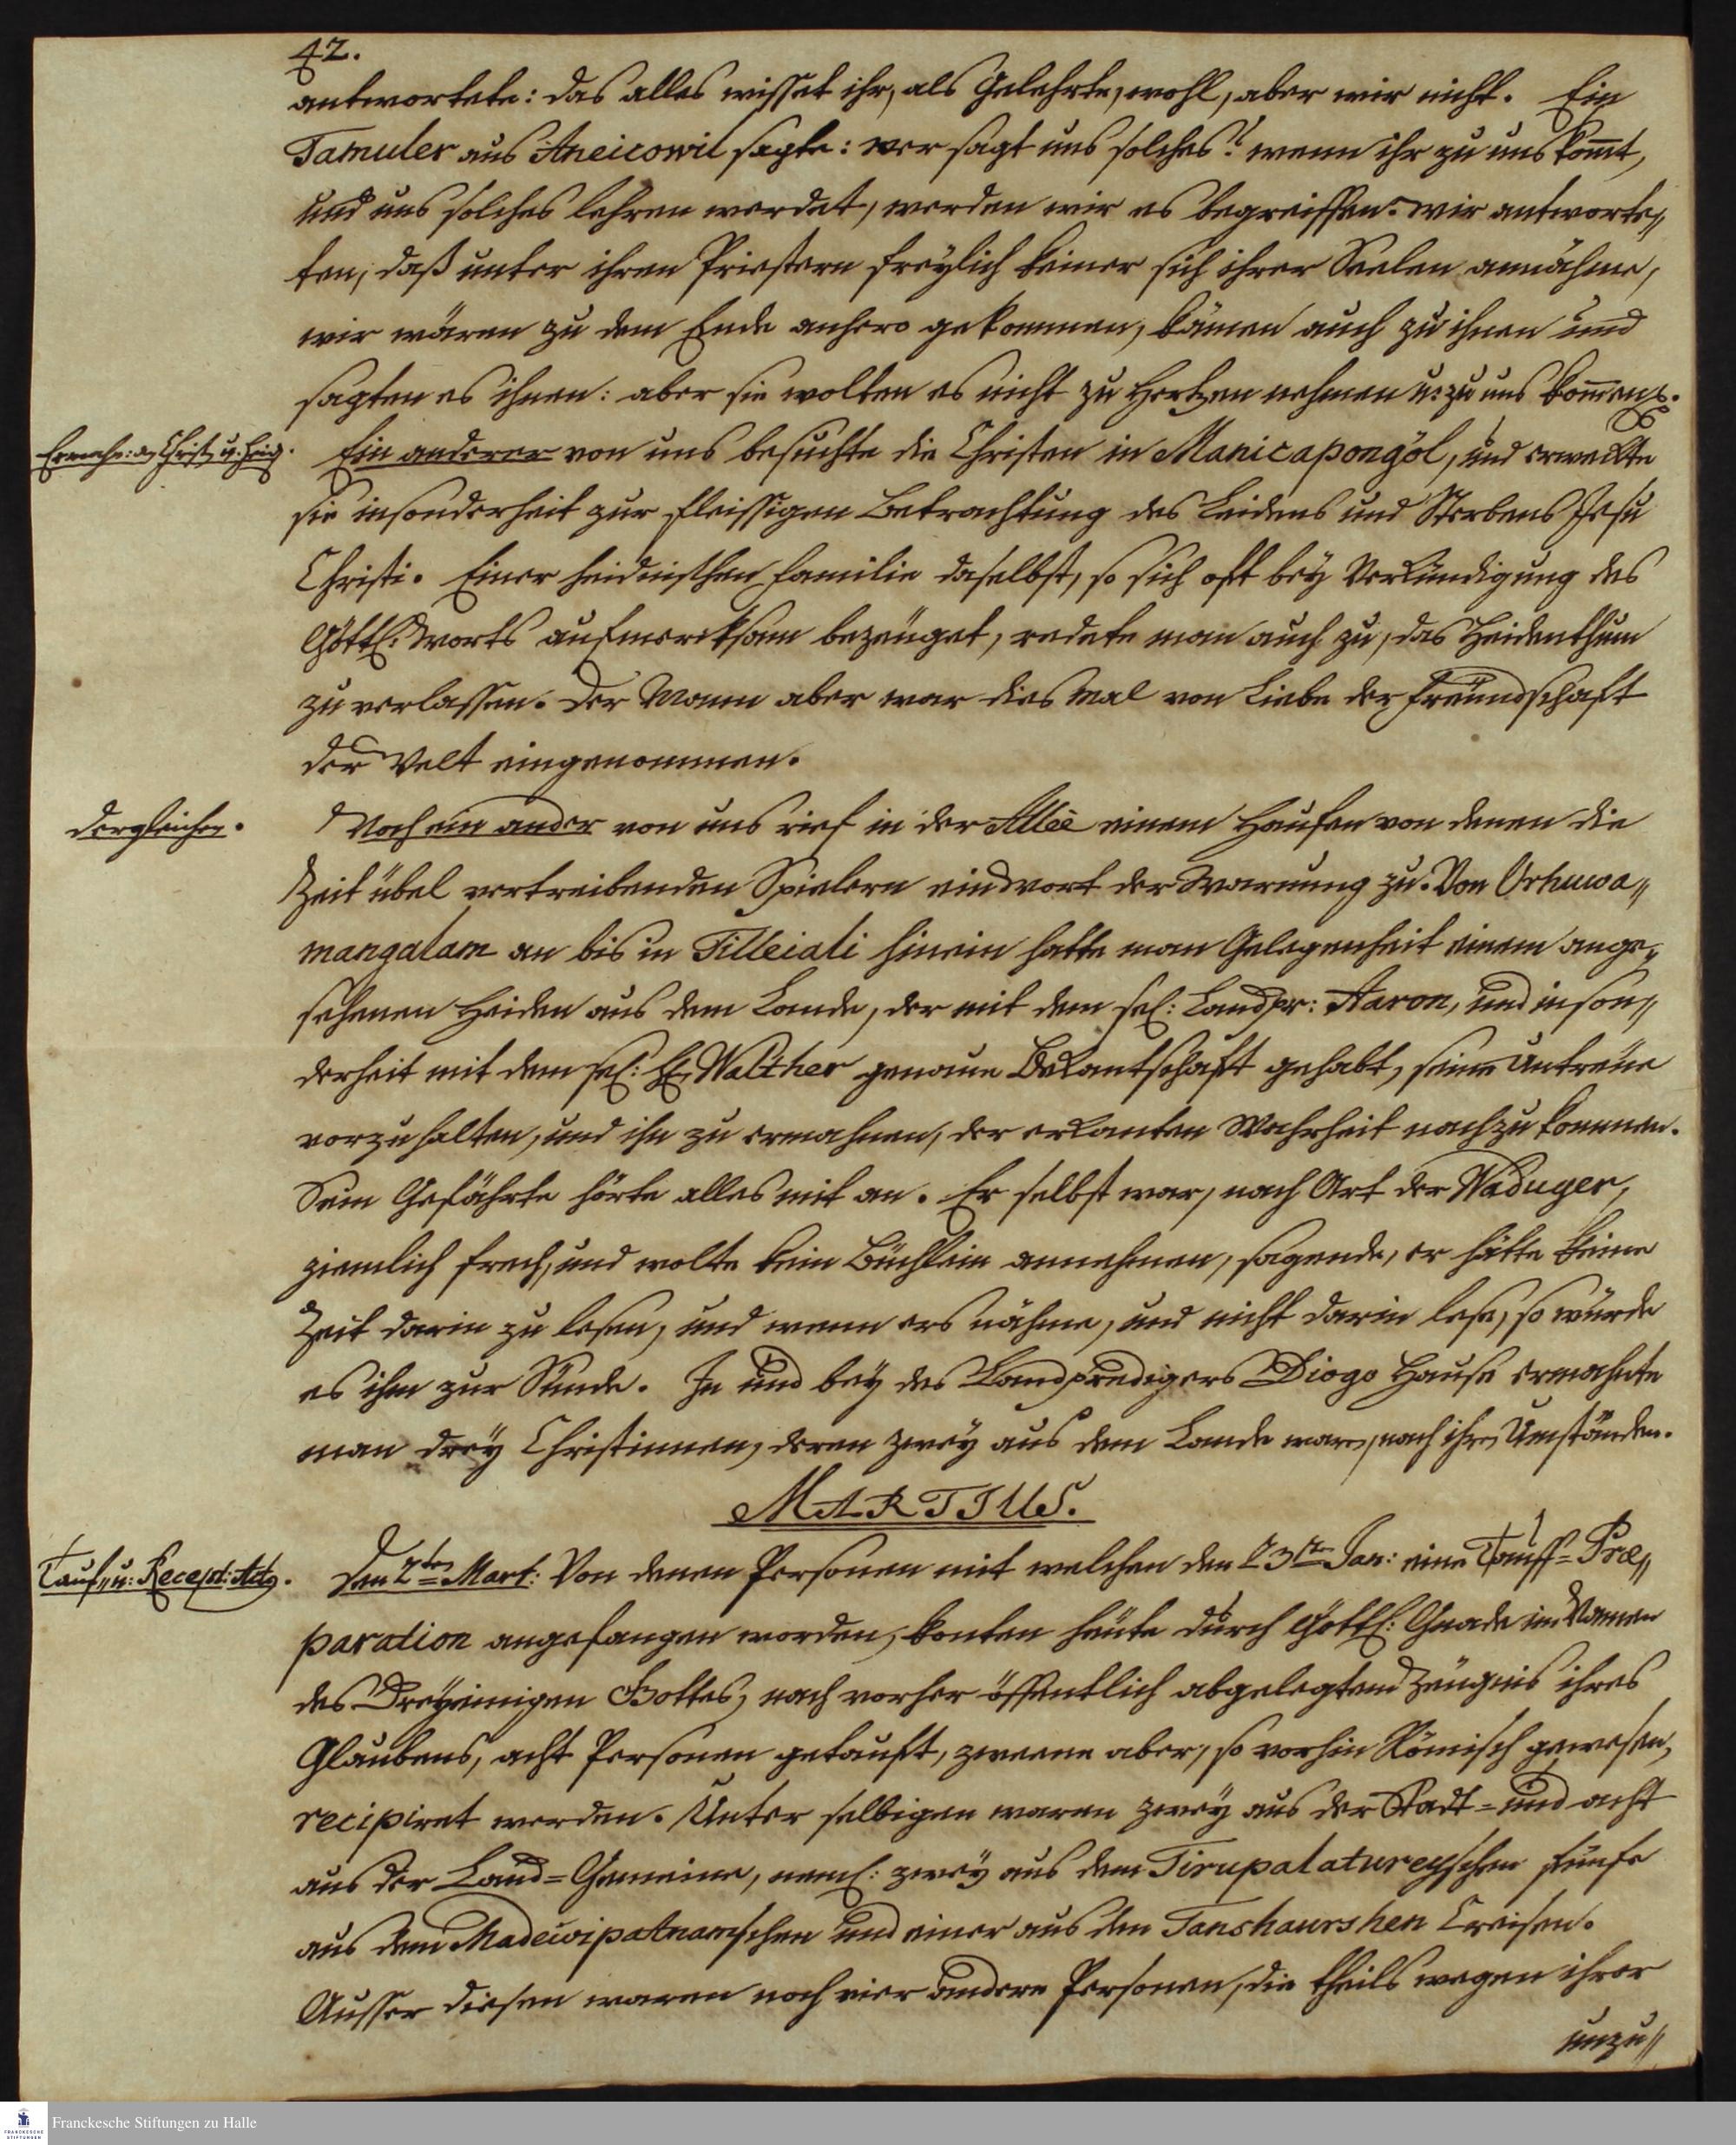 42.
antwortete: das alles wisset ihr, als Gelehrte, wohl, aber wir nicht. Ein
Tamuler aus Aneicowil sagte: wer sagt uns solches? wenn ihr zu uns kom̄t,
und uns solches lehren werdet, werden wir es begreiffen. Wir antworte〃
ten, daß unter ihren Priestern freÿlich keiner sich ihrer Seelen annähme,
wir wären zu dem Ende anhero gekommen, kämen auch zu ihnen und
sagten es ihnen: aber sie wolten es nicht zu Hertzen nehmen u: zu uns kom̄en
Ermahn: an Christ: u. Heid.
Ein anderer von uns besuchte die Christen in Manicapongöl, und erweckte
sie insonderheit zur fleissigen Betrachtung des Leidens und Sterbens Jesu
Christi. Einer heidnischen Familie daselbst, so sich oft beÿ Verkündigung des
Göttl: Worts aufmercksam bezeüget, redete man auch zu, das Heidenthum
zu verlassen. Der Mann aber war dies mal von Liebe der Freundschaft
der Welt eingenommen.
dergleichen.
Noch ein ander von uns rief in der Allée einem Haufen von denen die
Zeit übel vertreibenden Spielern ein Wort der Warnung zu. Von Orhuwa〃
mangalam an bis in Tilleiali hinein hatte man Gelegenheit einem ange〃
sehenen Heiden aus dem Lande, der mit dem sel: Landpr: Aaron, und inson〃
derheit mit dem sel: H. Walther genaue Bekantschaft gehabt, seine Untreüe
vorzuhalten, und ihn zu ermahnen, der erkanten Wahrheit nachzukommen.
Sein Gefährte hörte alles mit an. Er selbst war, nach Art der Waduger,
ziemlich frech, und wolte kein Büchlein annehmen, sagende, er hätte keine
Zeit darin zu lesen, und wenn ers nähme, und nicht darin lese, so würde
es ihm zur Sünde. In und beÿ des Landpredigers Diogo Hause ermahnte
man dreÿ Christinnen, deren zweÿ aus dem Lande waren, nach ihren Umständen.
MARTIUS.
Tauf〃 u: Recept: Act.
Den 2ten Mart: Von denen Personen mit welchen den 23ten Jan: eine Tauff=Præ〃
paration angefangen worden, konten heüte durch Göttl: Gnade im Namen
des Dreÿeinigen Gottes, nach vorher öffentlich abgelegtem Zeügnis ihres
Glaubens, acht Personen getauft, zweene aber, so vorhin Römisch gewesen,
recipiret werden. Unter selbigen waren zweÿ aus der Stadt= und acht
aus der Land=Gemeine, neml: zweÿ aus dem Tirupalatureyschen fünfe
aus dem Madewipatnamschen und einer aus dem Tanshaurshen Creisen.
Ausser diesen waren noch vier andere Personen, die theils wegen ihrer
unzu〃
Franckesche Stiftungen zu Halle
FRANCKESCHE
STIFTUNGEN